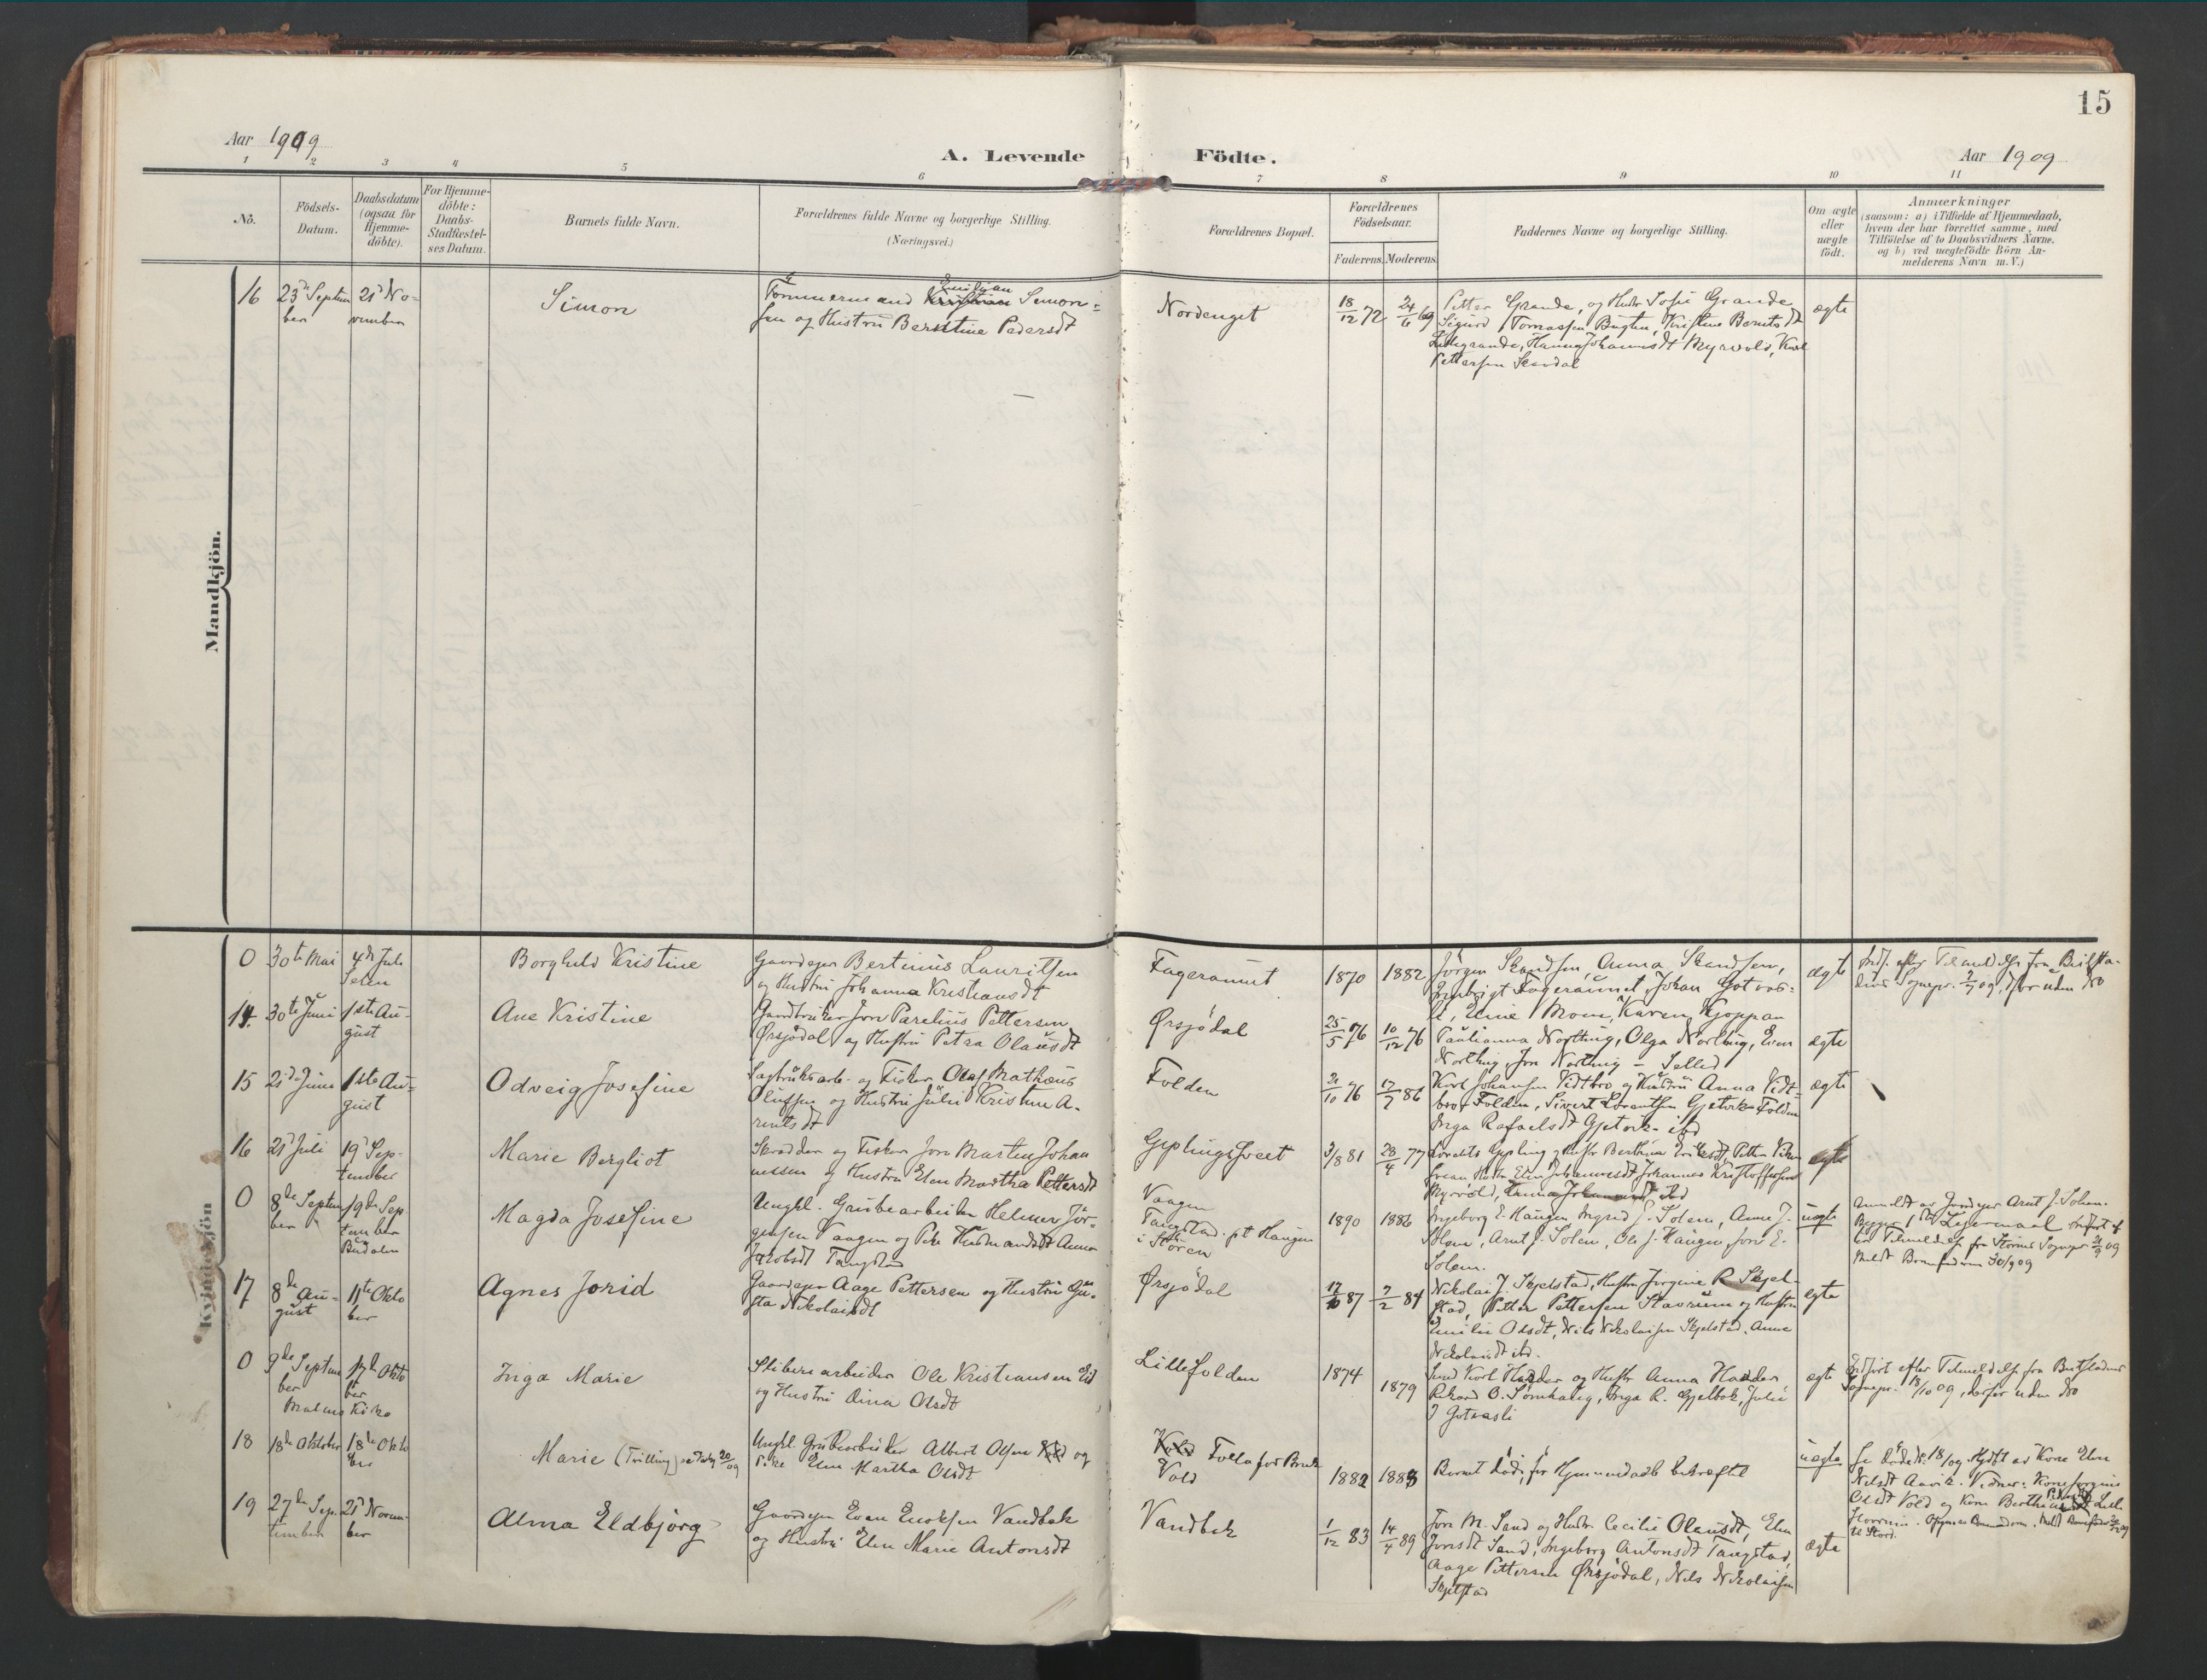 15
Aar 1909
A. Levende Födte.
Aar 1909
1 2 3 4 5 6 7 8 9 10 11
No.
Födsels-
Datum.
Daabsdatum
(ogsaa for
Hjemme-
döbte).
For Hjemme-
döbte:
Daabs-
Stadfæstel-
ses Datum.
Barnets fulde Navn.
Forældrenes fulde Navne og borgerlige Stilling.
(Næringsvei.)
Forældrenes Bopæl.
Forældrenes
Födselsaar.
Faderens. Moderens.
Faddernes Navne og borgerlige Stilling.
Om ægte
eller
uægte
födt.
Anmærkninger
(saasom: a) i Tilfælde af Hjemmedaab,
hvem der har forrettet samme, med
Tilföielse af to Daabsvidners Navne.
og b) ved uægtefödte Börn An-
melderens Navn m. V.)
Mandkjön.
16
23de Septem
ber
21de No-
vember
Simon
Tömmermand Kristian Simon-
sen og Hustru Berntine Pedersdt
Nordenget
18/12 72
24/6 69
Petter Grande, og Hustr Sofie Grande
Sigurd Tomassen Bugten, Kristine Berntsdt
Littlegrande, Hanna Johannesdt Myrvold, Karl
Pettersen
ægte
Kvindekjön
0
30te Mai
4de Juli
Borghild Kristine
Gaardejer Bertinus Lauritsen
og Hustru Johanna Kristiansdt
Fageramut
1870
1882
Jörgen Skandsen, Anna Skandsen,
Johan Gotvas-
li, Moen, Karen Kjoppan
ægte
Indf. efter Tilmeldelse fra Beitsta-
dens Sognepr. 2/7 09, derfor uden No
14
30te Juni
1ste Au-
gust
Ane Kristine
Gaardbruker Jon Parelius Pettersen
Ørsjödal og Hustru Petra Olausdt
Ørsjödal
25/5 76
10/12 76
Paulianna Northug, Olga Northug, Even
Northug, Jon Northug
ægte
15
21de Juni
1ste Au-
gust
Odveig Josefine
Sagbruksarb. og Fisker Olaf Mathæus
Olufsen og Hustru Julie Kristine A-
rentsdt
Folden
76
17/7 86
Karl Johansen Vidtbro og Hustru Anna Vidt-
bro Folden, Sivert Lorentsen Gjetvik Folden
Inga Rafaelsdt Gjetvik ibd
ægte
16
21de Juli
19de Sep-
tember
Marie Bergliot
Skrædder og Fisker Jon Martin Johan
nessen og Hustru Elen Martha Pettersdt
3/8 81
28/4 77
Myrvold, Anna Johannesdt ibd
ægte
0
8de Septem
ber
19de Sep-
tember
Budalen
Magda Josefine
Ungkl. Grubearbeider Helmer Jör-
gensen Vaagen og Pike Husmandsdt Anna
Jakobsdt Tangstad
Vaagen
Tangstad pt Haugen
i Stören
1890
1886
Ingeborg E. Haugen Ingrid J. Solem, Anne J.
Solem, Arnt J. Solem, Ole J. Haugen Jon E.
Solem.
uægte
Anmeldt av Jordejer Arnt J. Solem.
Begges 1ste Leiermaal. Indfört ef
ter Tilmeldelse fra Störens Sognepr. 21/9 09
Meldt Barnefaderen 30/9 09
17
8de Au-
gust
11te Okto
ber
Agnes Jorid
Gaardejer Aage Pettersen og Hustru Gu-
sta Nikolaisdt
Ørsjödal
87
7/2 84
Nikolai J. Skjelstad, Hustru Jörgine R Skjel-
stad, Petter Pettersen Stavrum og Hustru
Emilie Olsdt, Nils Nikolaisen Skjelstad, Anna
Nikolaisdt ibd.
ægte
0
9de Septem
ber
17de Okto
ber
Malms Kirke
Inga Marie
Slibere arbeider Ole Kristiansen Eid
og Hustru Dina Olsdt
Lillefolden
1874
1879
Karl Hadder og Hustr Anna Hadder
Rikard O. Inga R. Gjelbok, Julie
J Gotvasli
ægte
Indfört efter Tilmeldelse fra Beitstadens
Sognepr. 18/10 09, derfor uden No
18
18de Oktober
18de Okto
ber
Marie (Tvilling)
Ungkl. Grubearbeider Albert Olsen Vold og
Pike Elen Martha Olsdt
Follafos Bruk
Vold
1882
1883
Barnet död, för Hjemmedaab bekræftet
uægte
Se Döde No. 18/09. Hjdöbt av Kone Elen
Nilsdt Aavik. Vidner: Kone Jörgine
Olsdt Vold og Kone Berthea
19
27de Sep-
tember
21de Novem-
ber
Alma Eldbjörg
Gaardejer Even Enoksen Vandbak
og Hustru Elen Marie Antonsdt
Vandbak
1/12 83
14/4 89
Jon M. Sand og Hustr. Cecilie Olausdt, Elen
Jonsdt Sand, Ingeborg Antonsdt Tangstad,
Aage Pettersen Ørsjödal, Nils Nikolaisen
Skjelstad
ægte